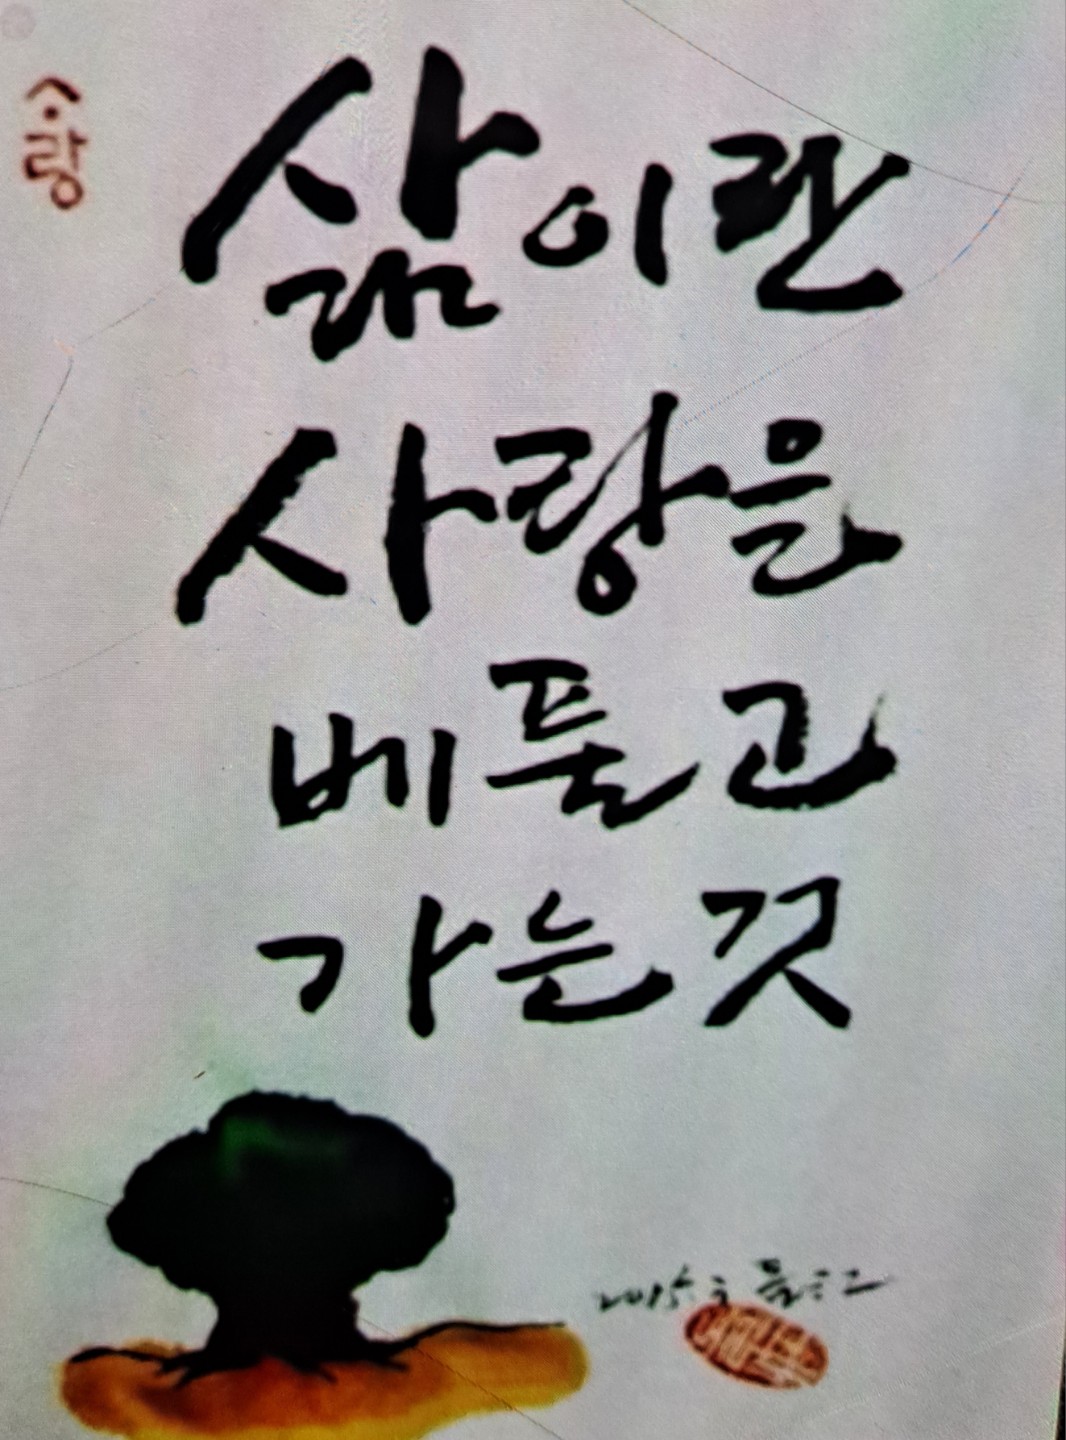 사랑
삶이란
사랑을
베풀고
가는 것